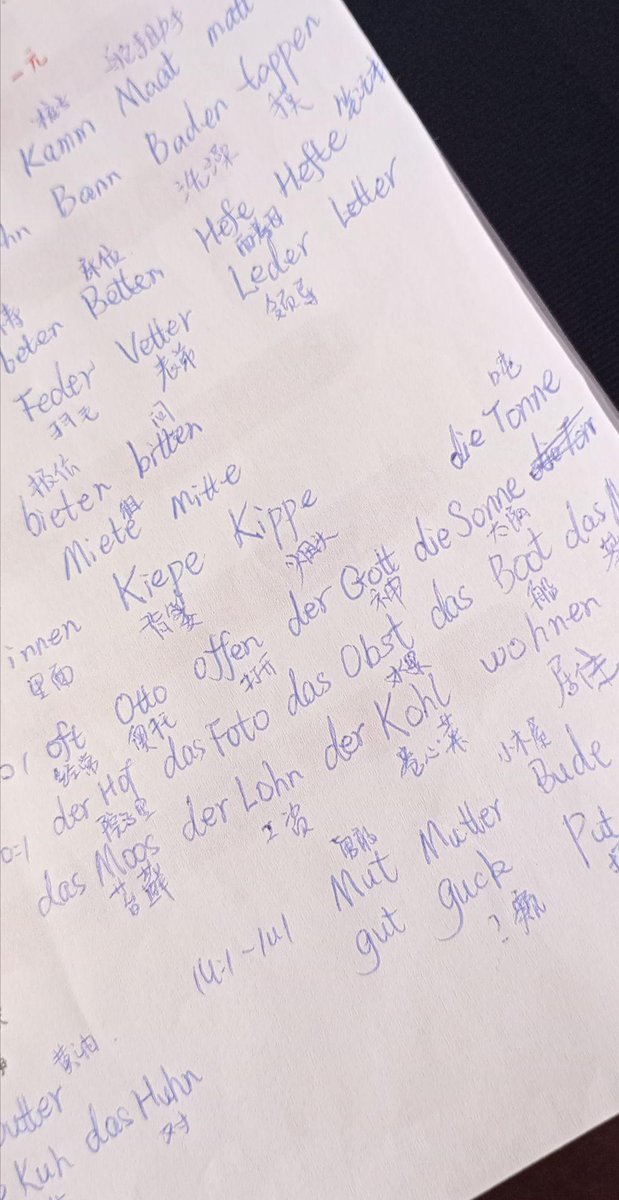 一元
Kamm Maat matt
Bann Baden tappen
洗澡 摸
床位
beten Betten Hefe Hefte
面包
Feder Vetter Leder Letter
羽毛 表弟 领导
bieten bitten
Miete Mitte die Tonne
吨
innen Kiepe Kippe
里面 背篓 烟头
oft Otto offen der Gott die Sonne
经常 奥托 打开 神 太阳
der Hof das Foto das Obst das Boot das
院子里 水果 船
das Moos der Lohn der Kohl wohnen
苔藓 工资 卷心菜 居住
小木屋
|u:|-|u| Mut Mutter Bude
gut guck Put
黄油
Butter
Kuh das Huhn